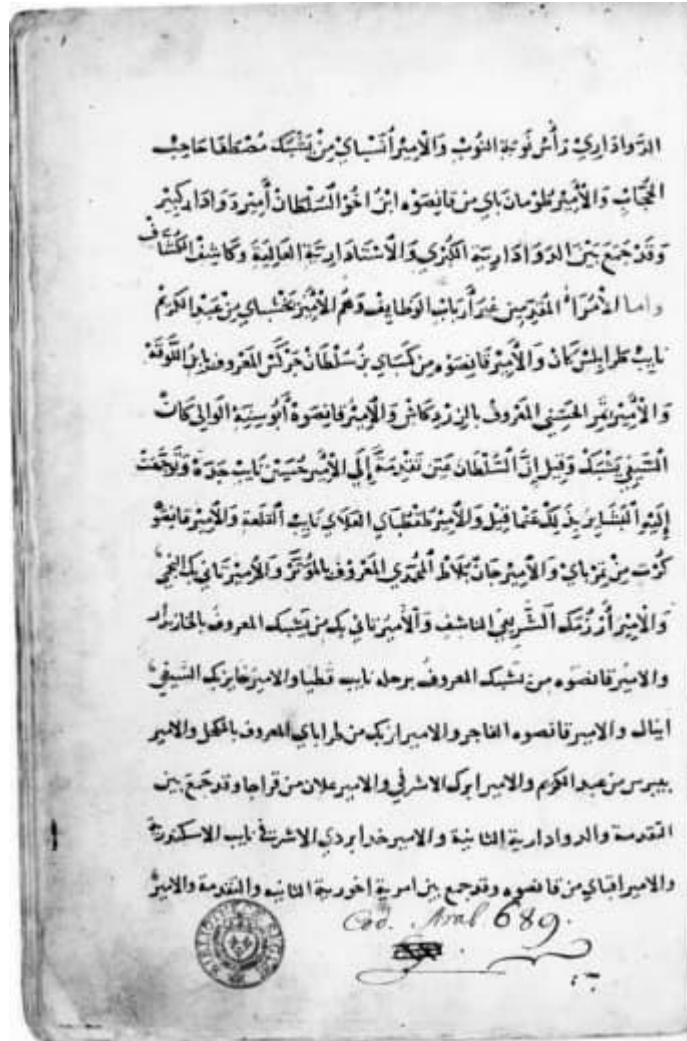 الدَّوادَارِيّ رَأْس نَوبَة النُّوب وَالأمِيرُ أنسْبَاي مِنْ يَشْبَك مُصْطَفَا حَاجِبْ
الحُجَّاب وَالأمِيرْ طُومَان بَاي مِن قانِصَوْه ابْنُ اخُو السُّلطَانْ أمِيرْ دَوَادَار كبِيرْ
وَقدْ جَمَعَ بَيْنَ الدَوَادَارِيَّة الكُبْرَي وَالأسْتَادَارِيَّة العَالِيَة وَكَاشِفْ الكُشَّاف
واما الأمَرَاءُ المُقدِّمين غيْرَ أرْبَابِ الوَظايِف وَهُم الأمِيْر تَخْشْبَاي مِنْ عَبد الكَرِيمْ
نايِبْ طرابلسْ كانْ وَالأمِيرْ قانِصَوْه مِن كَسْبَاي بنُ سُلطَانْ جَركَسْ المَعْرُوف بابْنُ اللُّوقَة
وَالأمِيْر الحسَنِي المَعْرُوف بِالزرْدكَاش وَالأمِيْر قانِصَوهْ أبُو سِنَّة الوَالي كَانْ
السَّيفِي يَشْبَكْ وَقِيل إنَّ السُّلطَان عَيَّن تَقْدِمَةً إلَى الأمِيرحُسَيْن نَايِبْ جدّة وَتَوَجَّهَتْ
إلَيْهِ البَشَايِر بذَلِكَ عَنْمَا قِيل وَالأمِيْر طُقْطُبَاي العَلاَي نَايِبْ القَلعَة وَالأمِيرْ قانصَوْ
كُرْت مِنْ بَاي وَالأمِيْر جَانْ بُلاَط المُحمَدِي المَعْرُوف بالمُوْتَر وَالأمِيرْ تاني بَك النجمِي
وَالأمِيْر أرْزْمَك الشّرِيفِي الناشف وَالأمِيْر تاني بك من يَشبك المعروف بالخازندار
والامِيْر قانصَوه من يشبك المعروفْ برجله نايب قطيا والاميرْ خاير بك السَّيفِي
اينال والاميْر قانصوه الفاجر والامير ازبك من طراباي المعروف بالمكحل والامير
بيبرس من عبد الكريم والاميْر ابرك الاشرفي والامير علان من قراجا وقد جَمَعَ بين
التقدمة والدوادارية الثانية والامير خدابردي الاشرفي نايب الاسكندرية
والامير اقباي من قانصوه وقد جمع بين امرية اخورية الثانيه والتقدمة والاميْر
Cod. Arab. 689.